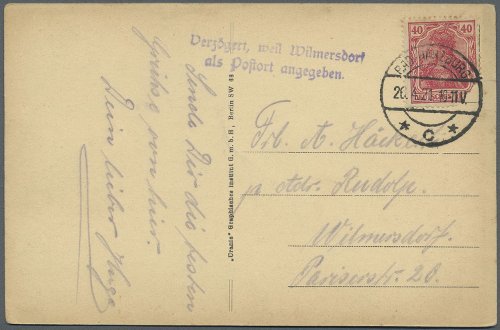 Verzögert, weil Wilmersdorf
als Postort angegeben.
40 40
C
Sende Dir die besten
Grüsse von hier.
Dein lieber
"Urania" Graphisches Institut G. m. b. H., Berlin SW 68
Frl. A.
p. Adr. Rudolp.
Wilmersdorf.
Pariserstr. 28.